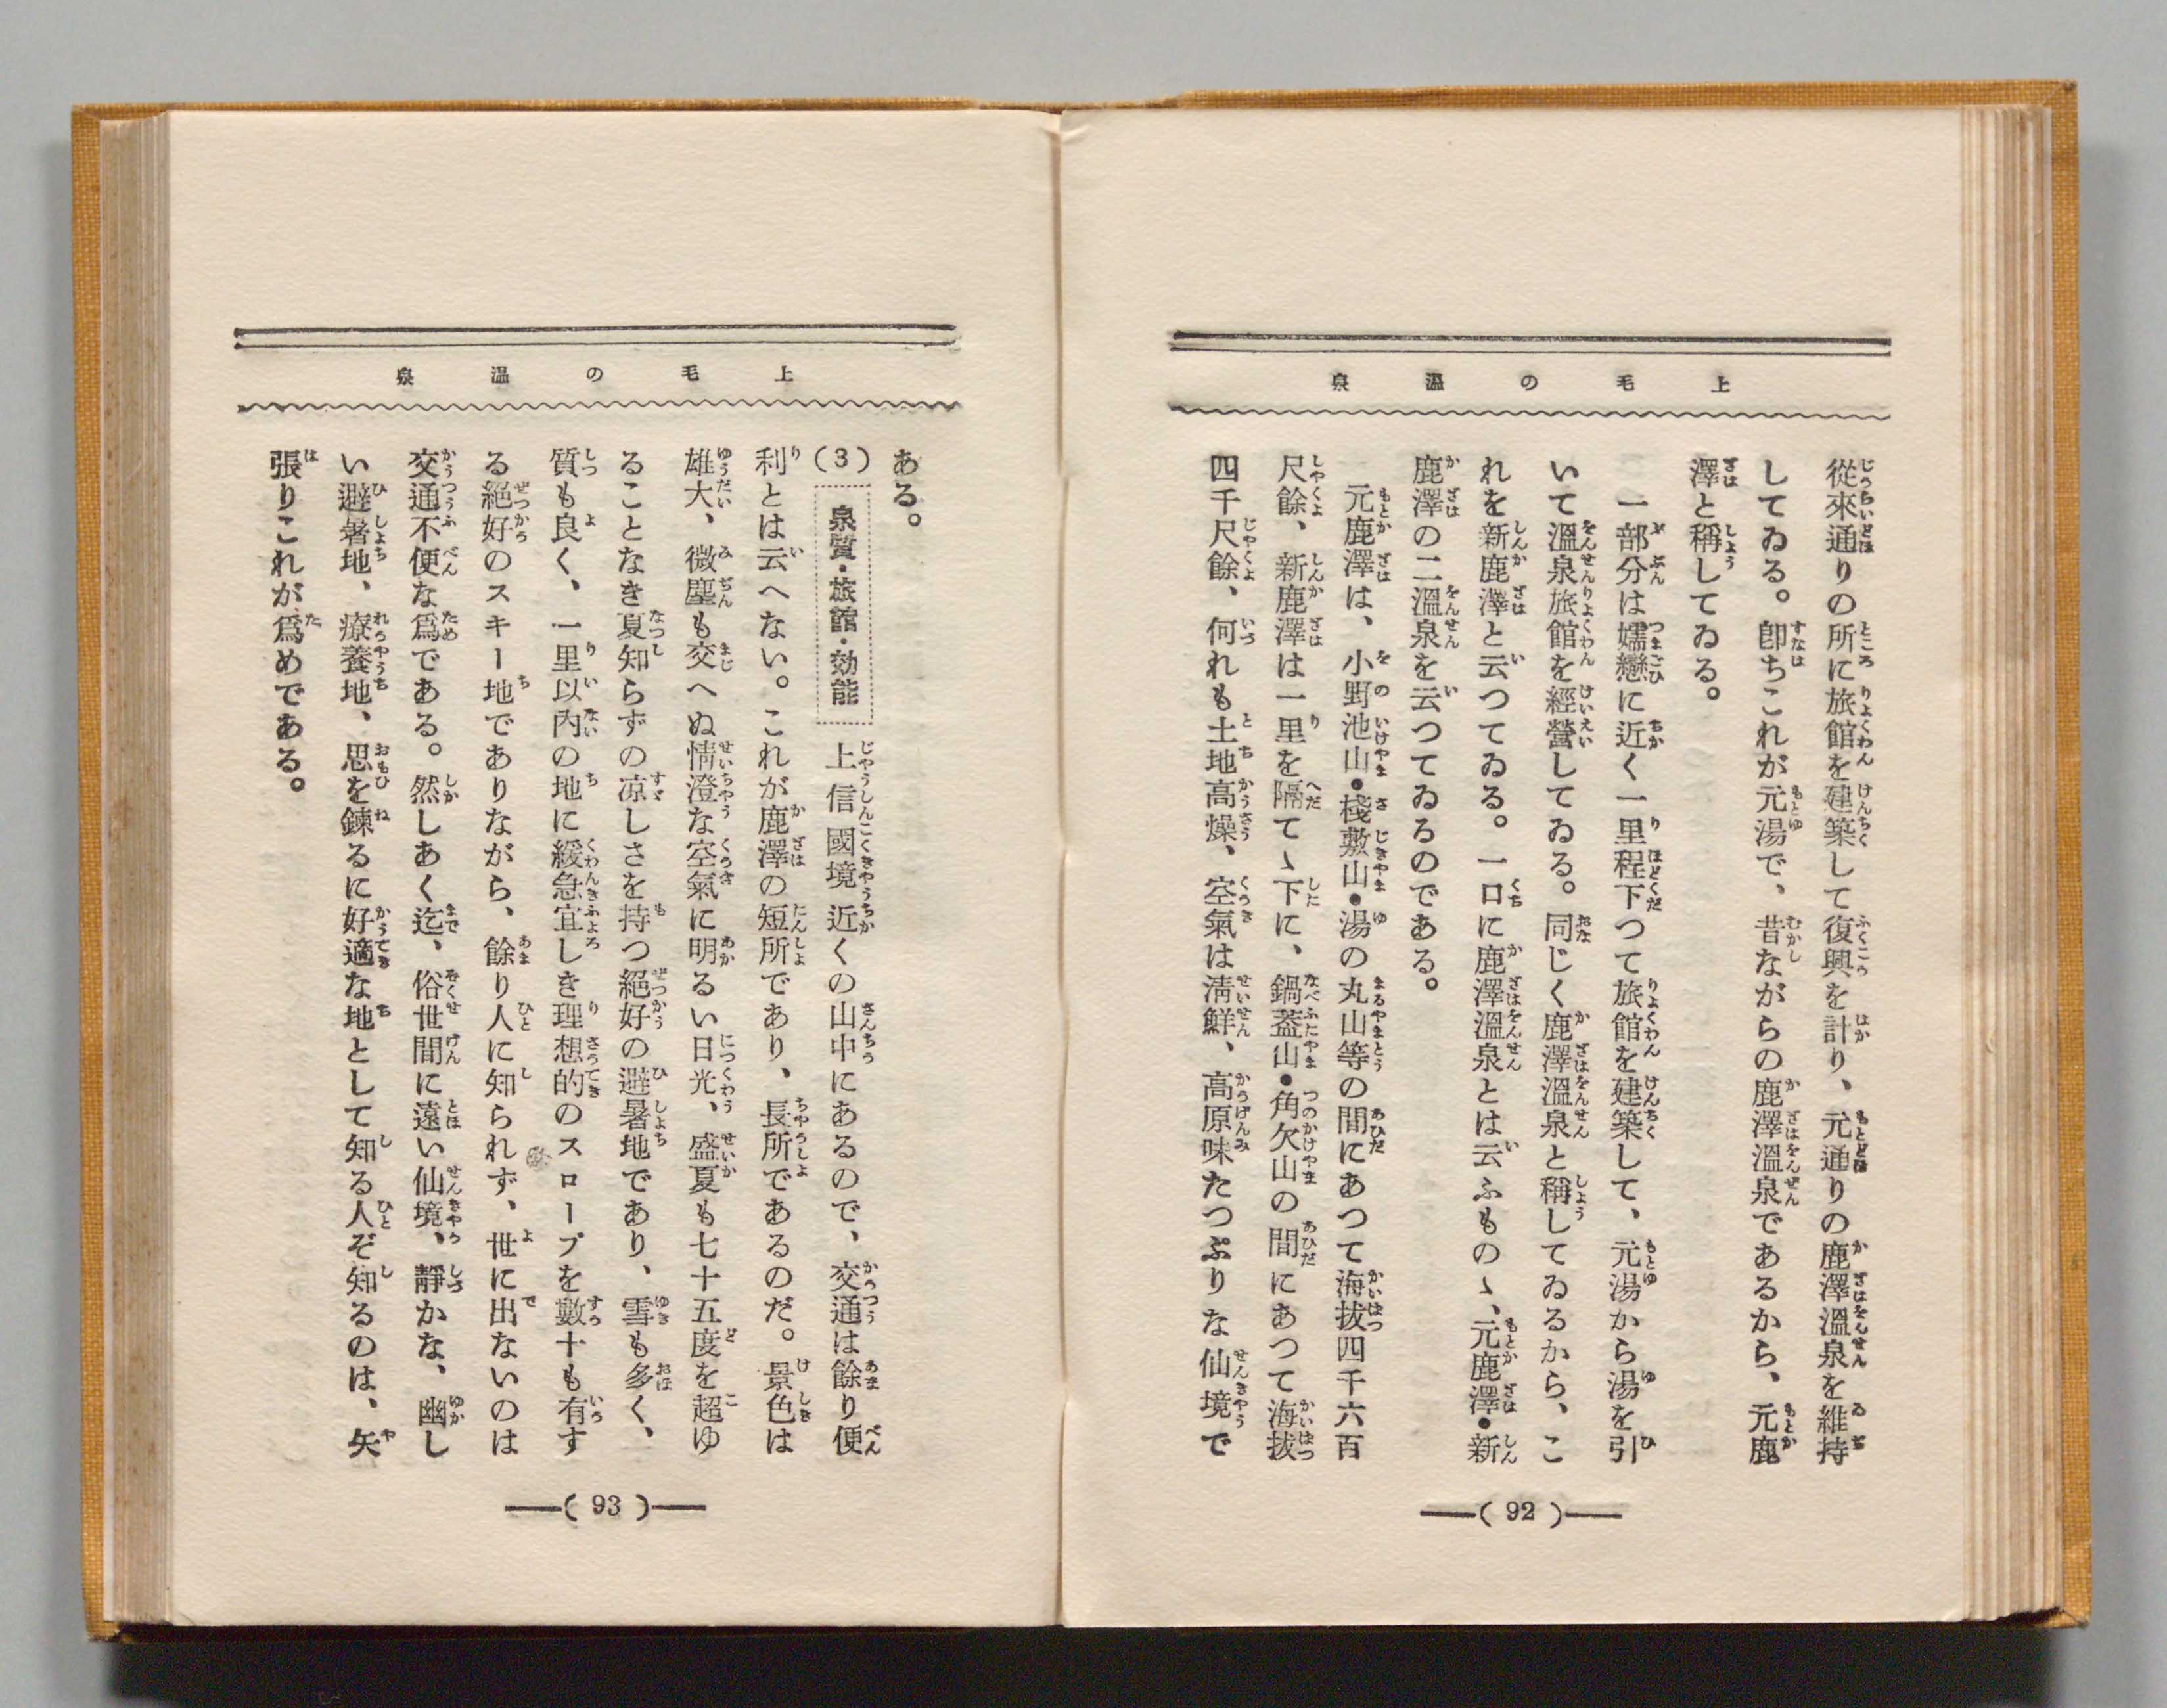 上毛の温泉
從來通りの所に旅館を建築して復興を計り、元通りの鹿澤溫泉を維持
してゐる。卽ちこれが元湯で、昔ながらの鹿澤溫泉であるから、元鹿
澤と稱してゐる。
一部分は嬬戀に近く一里程下つて旅館を建築して、元湯から湯を引
いて溫泉旅館を經營してゐる。同じく鹿澤溫泉と稱してゐるから、こ
れを新鹿澤と云つてゐる。一口に鹿澤溫泉とは云ふものゝ、元鹿澤・新
鹿澤の二溫泉を云つてゐるのである。
元鹿澤は、小野池山・棧敷山・湯の丸山等の間にあつて海拔四千六百
尺餘、新鹿澤は一里を隔てゝ下に、鍋蓋山・角欠山の間にあつて海拔
四千尺餘、何れも土地高燥、空氣は淸鮮、高原味たつぷりな仙境で
—( 92 )—
上毛の温泉
ある。
(3) 泉質・旅館・効能 上信國境近くの山中にあるので、交通は餘り便
利とは云へない。これが鹿澤の短所であり、長所であるのだ。景色は
雄大、微塵も交へぬ情澄な空氣に明るい日光、盛夏も七十五度を超ゆ
ることなき夏知らずの凉しさを持つ絕好の避暑地であり、雪も多く、
質も良く、一里以內の地に緩急宜しき理想的のスロープを數十も有す
る絕好のスキー地でありながら、餘り人に知られず、世に出ないのは
交通不便な爲である。然しあく迄、俗世間に遠い仙境、靜かな、幽し
い避暑地、療養地、思を鍊るに好適な地として知る人ぞ知るのは、矢
張りこれが爲めである。
—( 93 )—